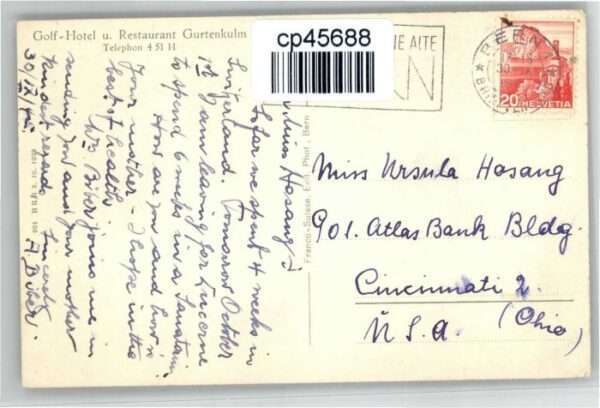 Golf-Hotel u. Restaurant Gurtenkulm
Telephon 4 51 11
cp45688
NE ALTE
BERN
20 HELVETIA
Franco-Suisse, Edit. Phot., Bern
Miss Hosang,
So far we spent 4 weeks in
Switzerland. Tomorrow October
1st I am leaving for Lucerne
to spend 6 weeks in a Sanitarium.
How are you and how is
your mother - I hope in the
best of health.
Mr. Biber joins me in
sending you and your mother
kindest regards
Sincerely
A. Biber.
Miss Ursula Hosang
901. Atlas Bank Bldg.
Cincinnati 2.
(Ohio)
U.S.A.